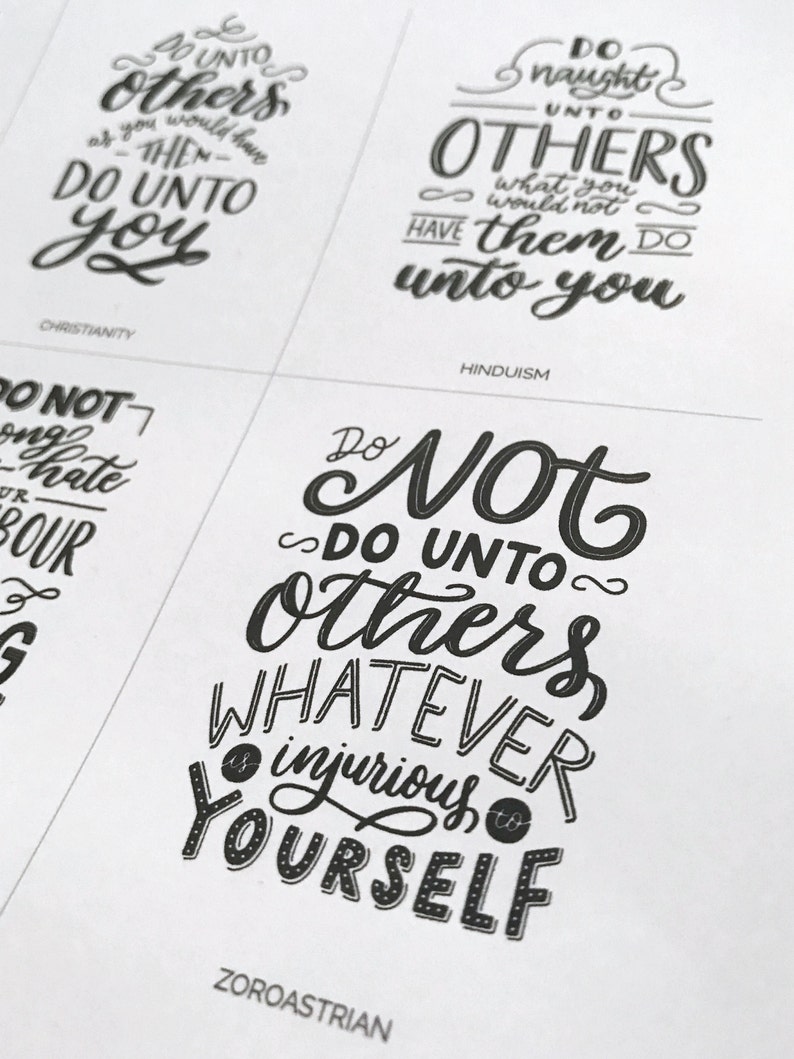 DO UNTO
others
as you would have
THEM
DO UNTO
you
CHRISTIANITY
DO
naught
UNTO
OTHERS
what you
would not
HAVE them DO
unto you
HINDUISM
DO NOT
hate
Do NOT
DO UNTO
others,
WHATEVER
is injurious to
YOURSELF
ZOROASTRIAN